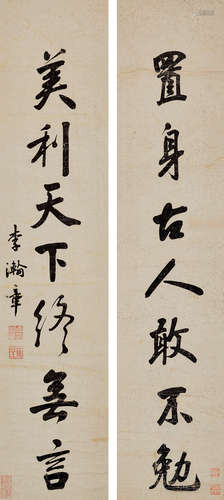 置身古人敢不勉
美利天下終無言
李瀚章